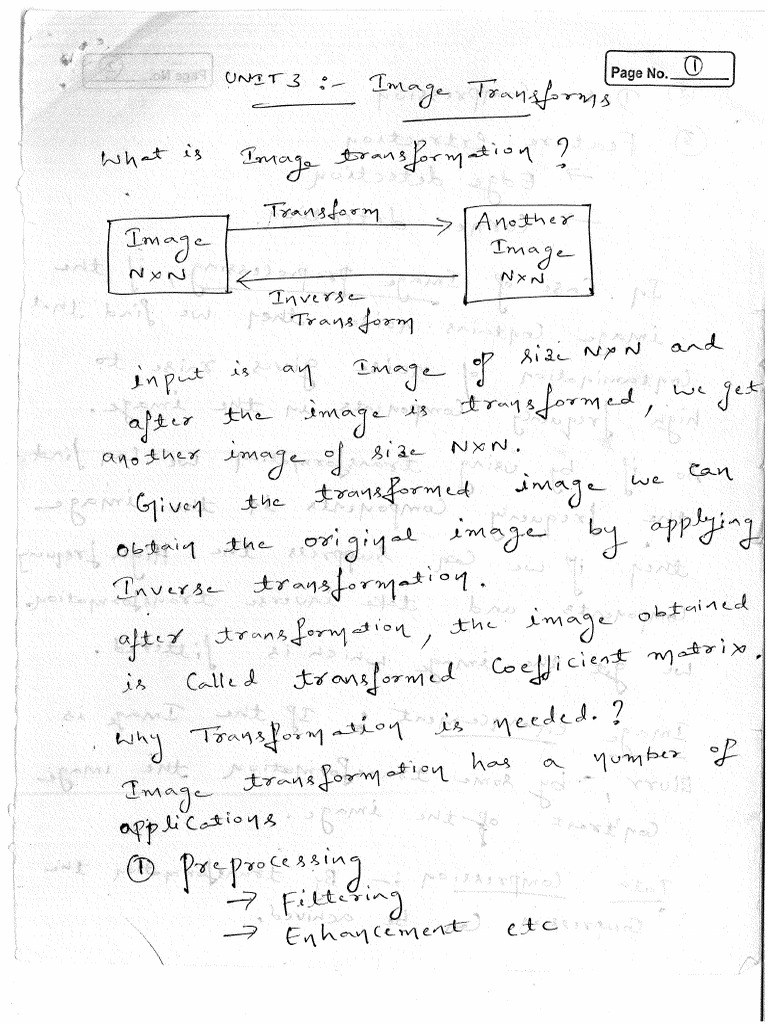 Page No. ①
UNIT 3 :- Image Transforms
What is Image transformation ?
Transform
Image
N×N
Another
Image
N×N
Inverse
Transform
input is an Image of size N×N and
after the image is transformed, we get
another image of size N×N.
Given the transformed image we can
obtain the original image by applying
Inverse transformation.
after transformation, the image obtained
is called transformed Coefficient matrix.
Why Transformation is needed. ?
Image transformation has a number of
applications
① Preprocessing
→ Filtering
→ Enhancement etc